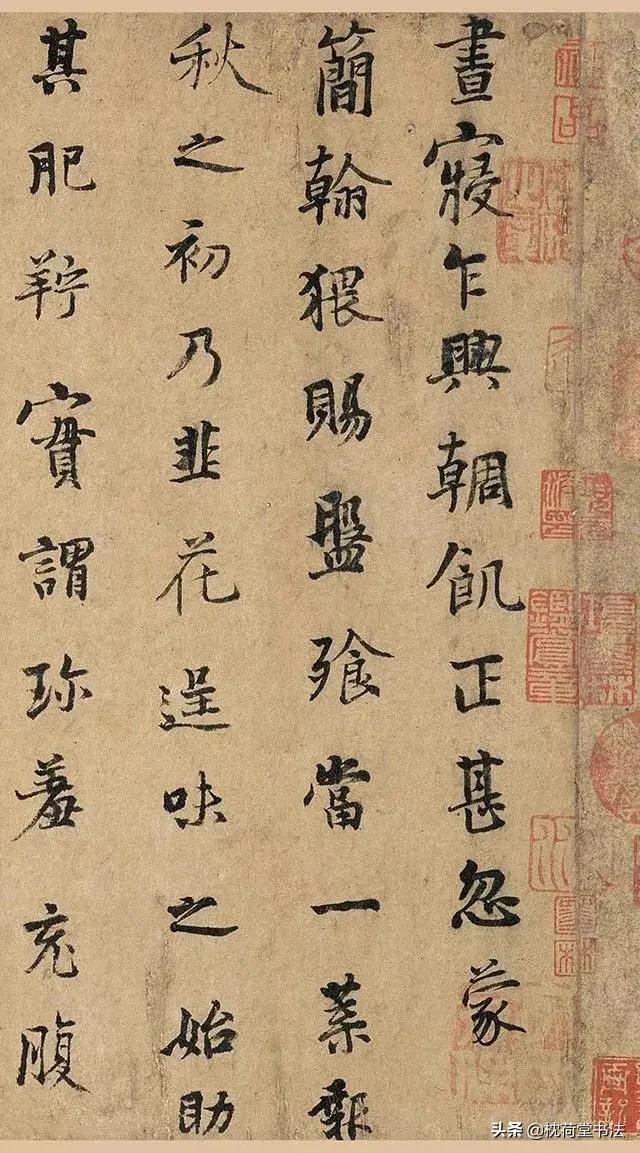 晝寢乍興輖飢正甚忽蒙
簡翰猥賜盤飱當一葉報
秋之初乃韭花逞味之始助
其肥羜實謂珍羞充腹
头条 @枕荷堂书法